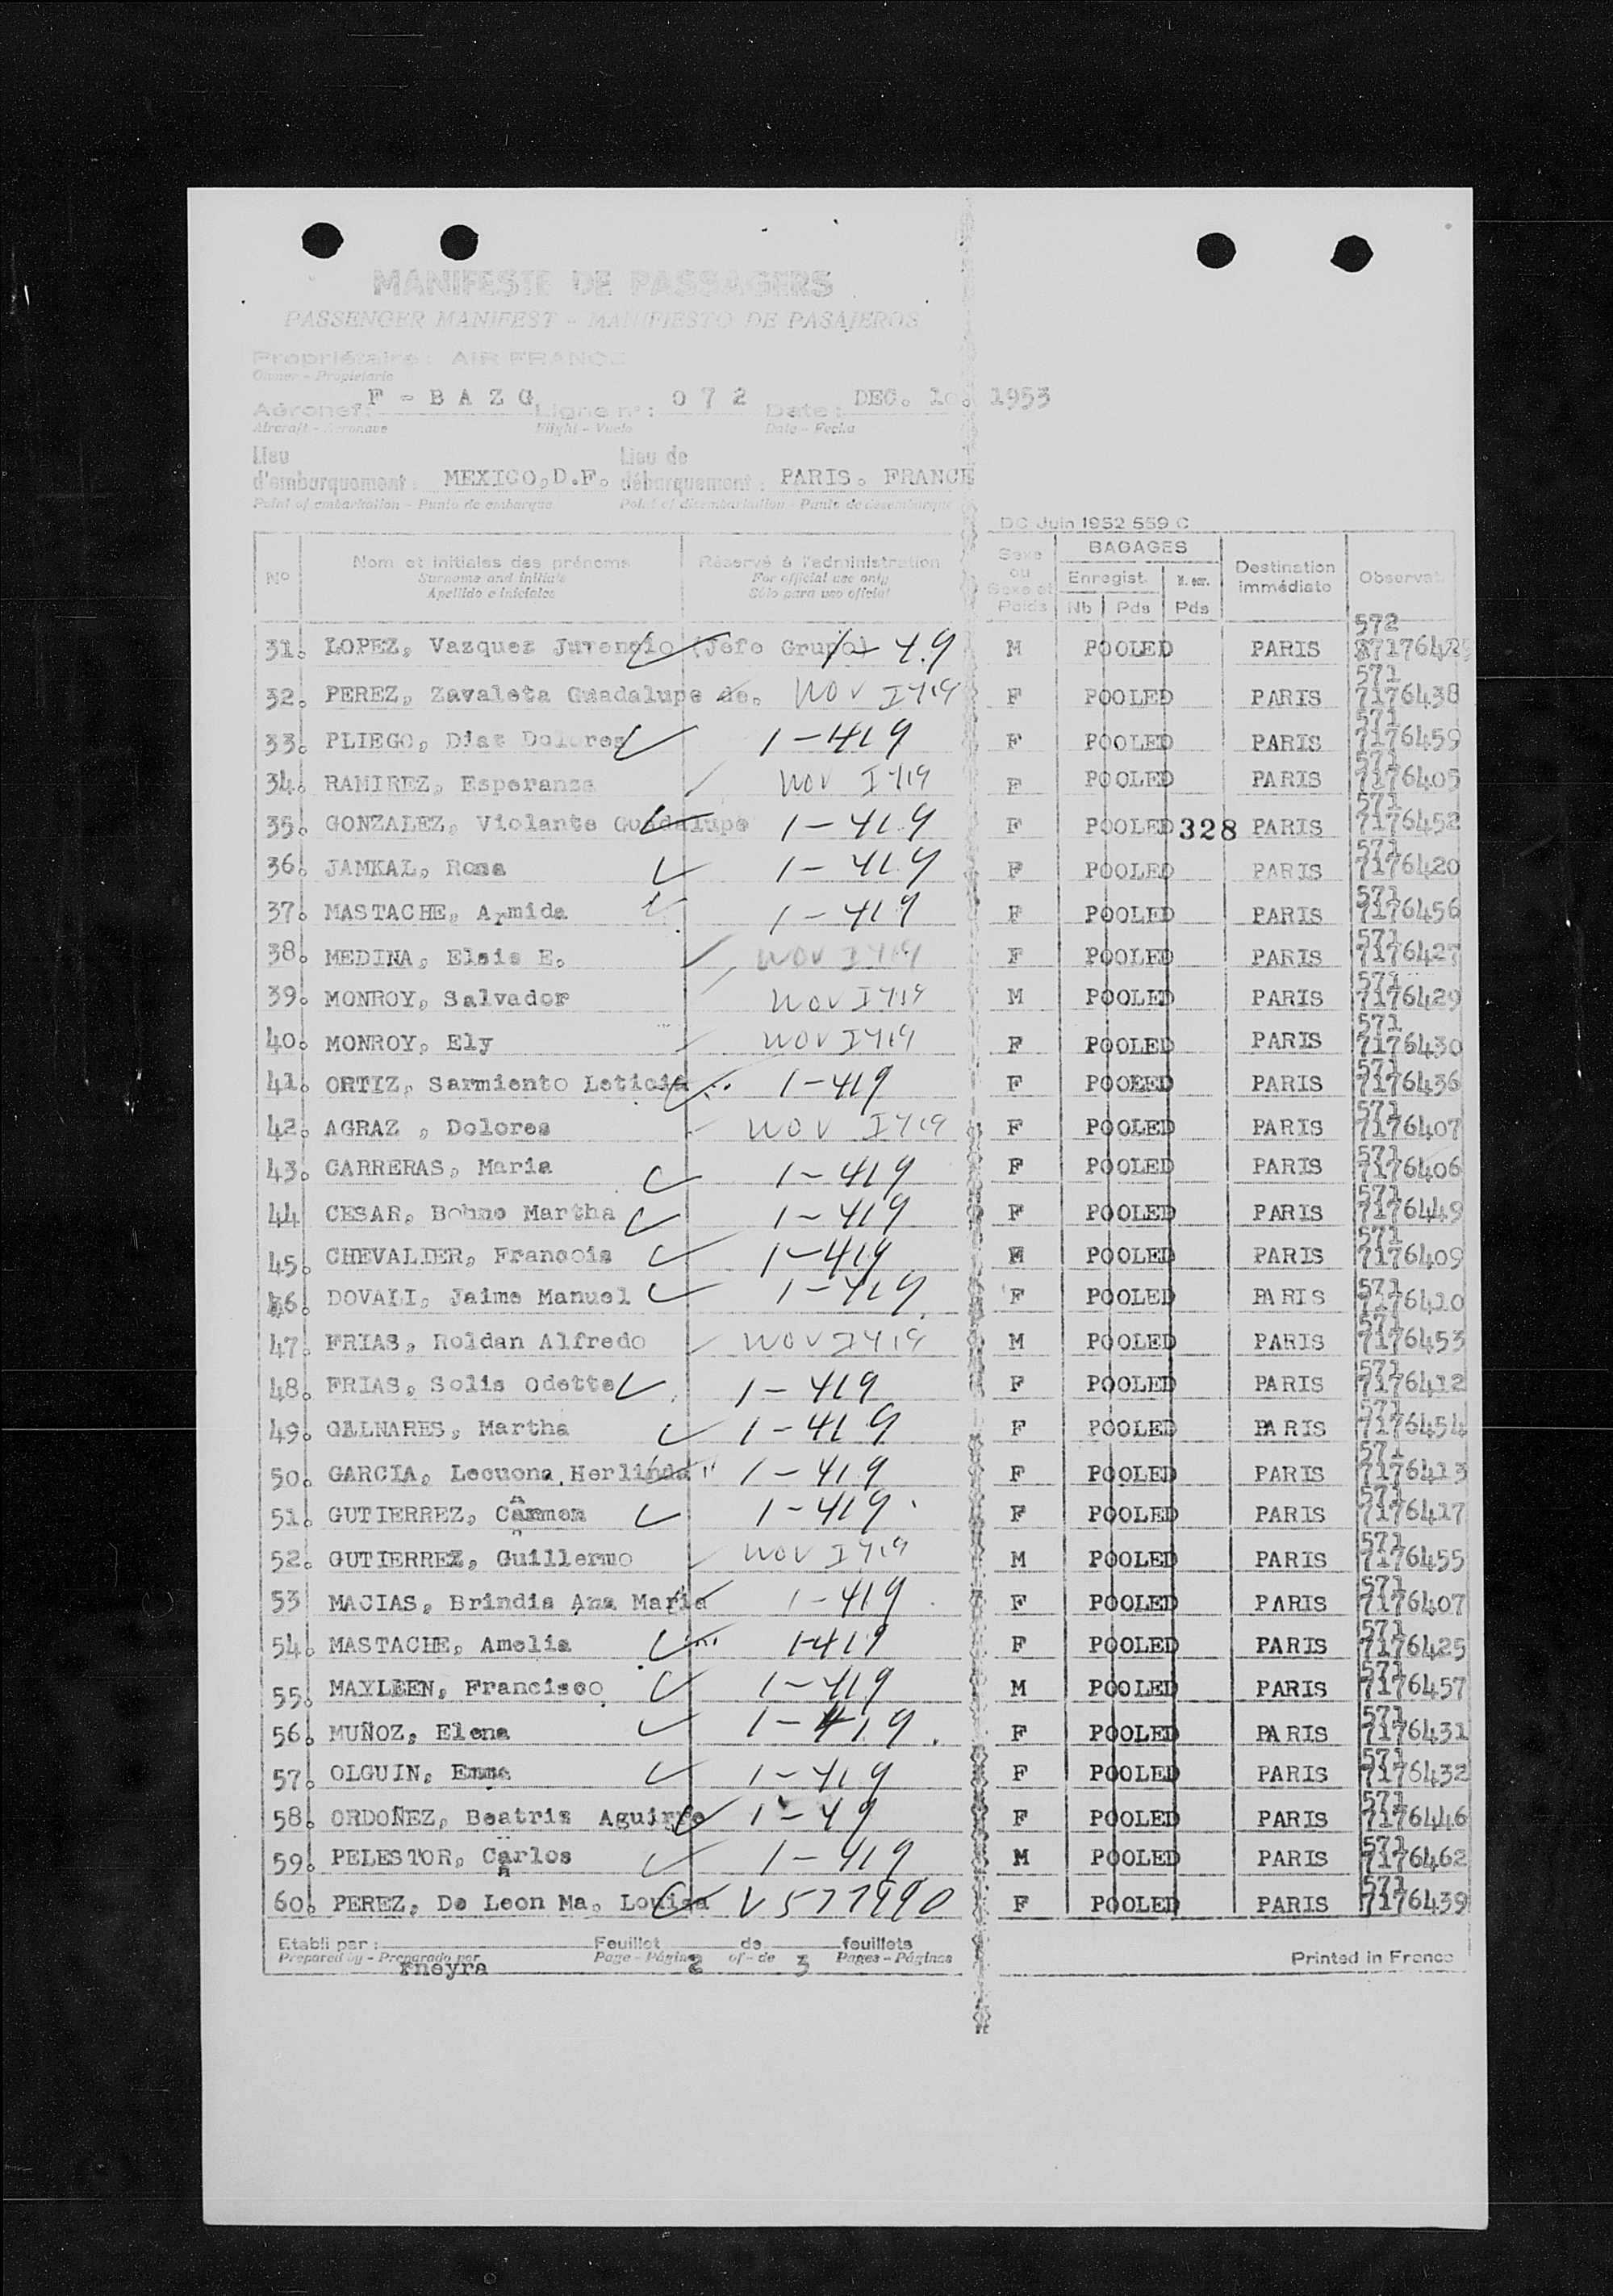 MANIFESTE DE PASSAGERS
PASSENGER MANIFEST - MANIFIESTO DE PASAJEROS
Propriétaire: AIR FRANCE
Owner - Propietario
Aéronef: F - B A Z G Ligne n°: 0 7 2 Date: DEC. 10. 1953
Aircraft - Aeronave Flight - Vuelo Date - Fecha
Lieu d'embarquement: MEXICO,D.F. Lieu de débarquement: PARIS. FRANCE
Point of embarkation - Punto de embarque Point of disembarkation - Punto de desembarque
DC Juin 1952 559 C
No Nom et initiales des prénoms Réservé à l'administration Sexe ou Sexe et Poids BAGAGES Destination immédiate Observat.
Surname and initials For official use only Enregist. N. enr.
Apellido e iniciales Sólo para uso oficial Nb Pds Pds
31. LOPEZ, Vazquez Juvencio (Jefe Grupo) 1-4.9 M POOLED PARIS 572
32. PEREZ, Zavaleta Guadalupe de. NOV I419 F POOLED PARIS 571 7176438
33. PLIEGO, Diaz Dolores 1-419 F POOLED PARIS 571 7176459
34. RAMIREZ, Esperanza NOV I419 F POOLED PARIS 571 7176405
35. GONZALEZ, Violante Guadalupe 1-419 F POOLED 328 PARIS 571 7176452
36. JAMKAL, Rosa 1-419 F POOLED PARIS 571 7176420
37. MASTACHE, Armida 1-419 F POOLED PARIS 571 7176456
38. MEDINA, Elsie E. NOV I419 F POOLED PARIS 571 7176427
39. MONROY, Salvador NOV I419 M POOLED PARIS 571 7176429
40. MONROY, Ely NOV I419 F POOLED PARIS 571 7176430
41. ORTIZ, Sarmiento Leticia 1-419 F POOLED PARIS 571 7176436
42. AGRAZ , Dolores NOV I419 F POOLED PARIS 571 7176407
43. CARRERAS, Maria 1-419 F POOLED PARIS 571 7176406
44 CESAR, Bohme Martha 1-419 F POOLED PARIS 571 7176449
45. CHEVALIER, Francois 1-419 POOLED PARIS 571 7176409
46. DOVALI, Jaime Manuel 1-419 F POOLED PARIS 571 7176410
47. FRIAS, Roldan Alfredo NOV I419 M POOLED PARIS 571 7176453
48. FRIAS, Solis Odette 1-419 F POOLED PARIS 571 7176412
49. GALNARES, Martha 1-419 F POOLED PARIS 571 7176454
50. GARCIA, Lecuona Herlinda 1-419 F POOLED PARIS 571 7176413
51. GUTIERREZ, Carmen 1-419 F POOLED PARIS 571 7176417
52. GUTIERREZ, Guillermo NOV I419 M POOLED PARIS 571 7176455
53 MACIAS, Brindis Ana Maria 1-419 F POOLED PARIS 571 7176407
54. MASTACHE, Amelia 1-419 F POOLED PARIS 571 7176425
55. MAYLEEN, Francisco 1-419 M POOLED PARIS 571 7176457
56. MUÑOZ, Elena 1-419. F POOLED PARIS 571 7176431
57. OLGUIN, Emma 1-419 F POOLED PARIS 571 7176432
58. ORDOÑEZ, Beatriz Aguirre 1-49 F POOLED PARIS 571 7176446
59. PELESTOR, Carlos 1-419 M POOLED PARIS 571 7176462
60. PEREZ, De Leon Ma. Louisa V577990 F POOLED PARIS 571 7176439
Etabli par: Feuillet de feuillets
Prepared by - Preparado por Fneyra Page - Página 2 of - de 3 Pages - Páginas Printed in France